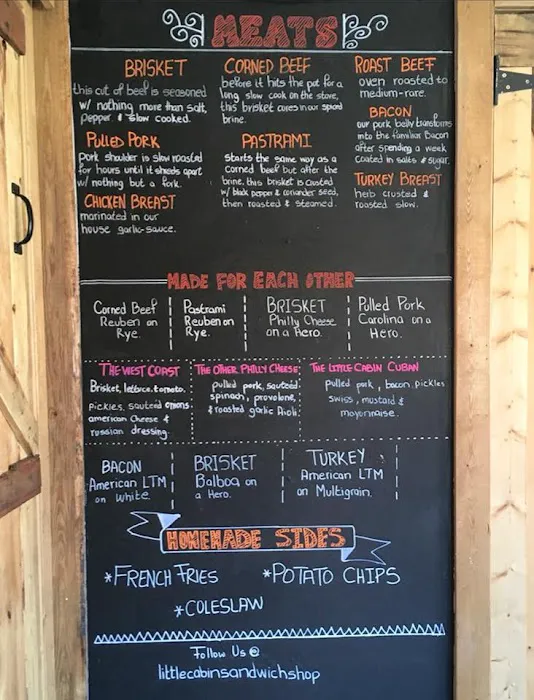 MEATS
BRISKET
this cut of beef is seasoned
w/ nothing more than salt,
pepper & slow cooked.
PULLED PORK
pork shoulder is slow roasted
for hours until it shreds apart
w/ nothing but a fork.
CHICKEN BREAST
marinated in our
house garlic-sauce.
CORNED BEEF
before it hits the pot for a
long slow cook on the stove,
this brisket cures in our spiced
brine.
PASTRAMI
starts the same way as a
corned beef but after the
brine, this brisket is crusted
w/ black pepper & coriander seed,
then roasted & steamed.
ROAST BEEF
oven roasted to
medium-rare.
BACON
our pork belly transforms
into the familiar bacon
after spending a week
coated in salts & sugar.
TURKEY BREAST
herb crusted &
roasted slow.
MADE FOR EACH OTHER
Corned Beef
Reuben on
Rye.
Pastrami
Reuben on
Rye.
BRISKET
Philly Cheese
on a Hero.
Pulled Pork
Carolina on a
Hero.
THE WEST COAST
Brisket, lettuce, tomato,
pickles, sauteed onions
american cheese &
russian dressing.
THE OTHER PHILLY CHEESE
pulled pork, sauteed
spinach, provolone,
& roasted garlic aioli.
THE LITTLE CABIN CUBAN
pulled pork, bacon, pickles
swiss, mustard &
mayonnaise.
BACON
American LTM
on White.
BRISKET
Balboa on
a Hero.
TURKEY
American LTM
on Multigrain.
HOMEMADE SIDES
*FRENCH FRIES
*POTATO CHIPS
*COLESLAW
Follow Us @
littlecabinsandwichshop